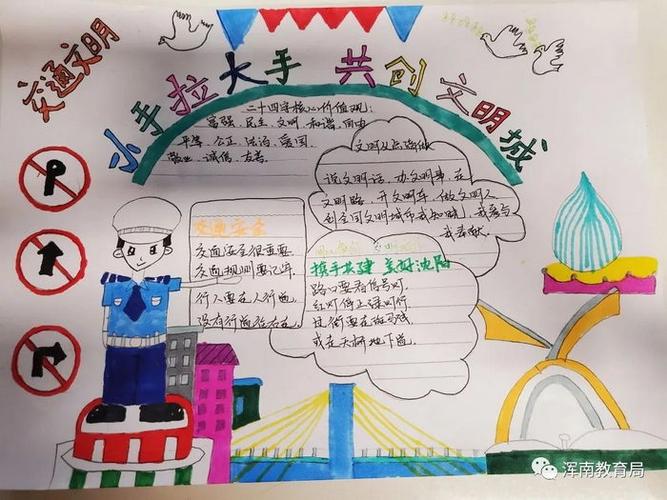 交通文明
小手拉大手 共创文明城
二十四字核心价值观:
富强、民主、文明、和谐、自由、
平等、公正、法治、爱国、
敬业、诚信、友善。
说文明话,办文明事,走
文明路,开文明车,做文明人
创全国文明城市我知晓,我参与
我奉献。
交通安全
交通安全很重要
交通规则要记牢
行人要走人行道
没有行道往右走。
携手共建 美好沈阳
路口要看信号灯,
红灯停止绿灯行
过街要走斑马线
或走天桥地下道。
浑南教育局